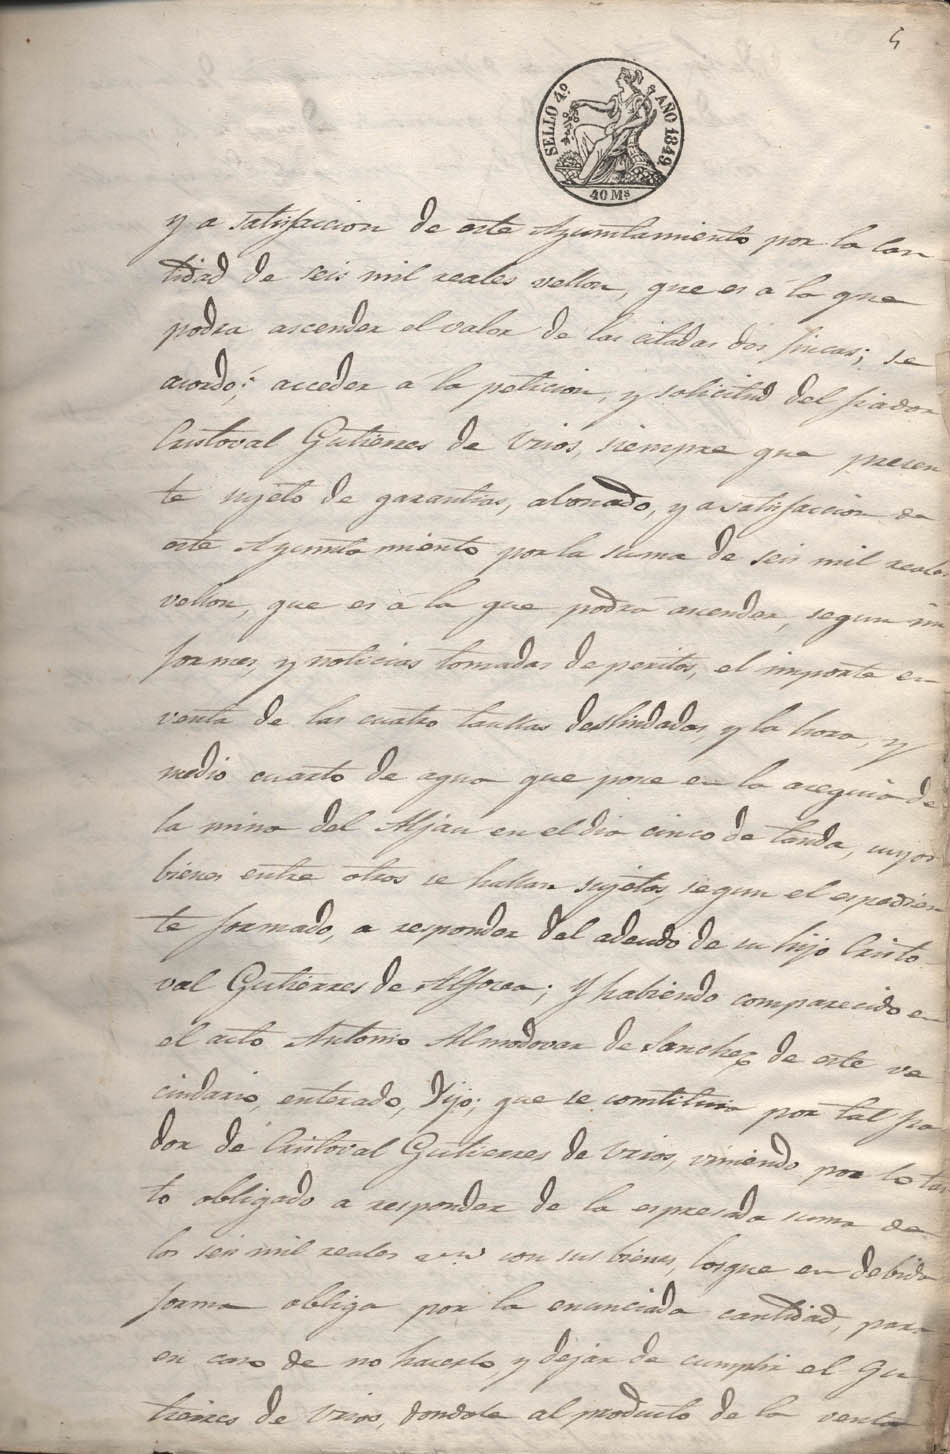 5
SELLO 4.º AÑO 1849.
40 Ms
y a satisfaccion de este Ayuntamiento por la can
tidad de seis mil reales vellon, que es á la que
podra ascender el valor de las citadas dos fincas; se
acordó; acceder a la peticion, y solicitud del fiador
Cristoval Gutierres de Vrios, siempre que presen
te sujeto de garantias, abonado, y a satisfaccion de
este Ayuntamiento por la suma de seis mil reales
vellon, que es á la que podrá ascender, segun in
formes, y noticias tomadas de peritos, el importe en
venta de las cuatro taullas deslindadas, y la hora, y
medio cuarto de agua que pone en la acequia de
la mina del Aljau en el dia cinco de tanda, cuyos
bienes entre otros se hallan sujetos, segun el espedien
te formado, a responder del adeudo de su hijo Cristo
val Gutierres de Alfocea; y habiendo comparecido en
el acto Antonio Almodovar de Sanchez de este ve
cindario, enterado, Dijo; que se constituia por tal fia
dor de Cristoval Gutierres de Vrios, viniendo por lo tan
to obligado a responder de la espresada suma de
los seis mil reales vn con sus bienes, los que en debida
forma obliga por la enunciada cantidad, para
en caso de no hacerlo, y dejar de cumplir el Gu
tierres de Vrios, dandole al producto de la venta